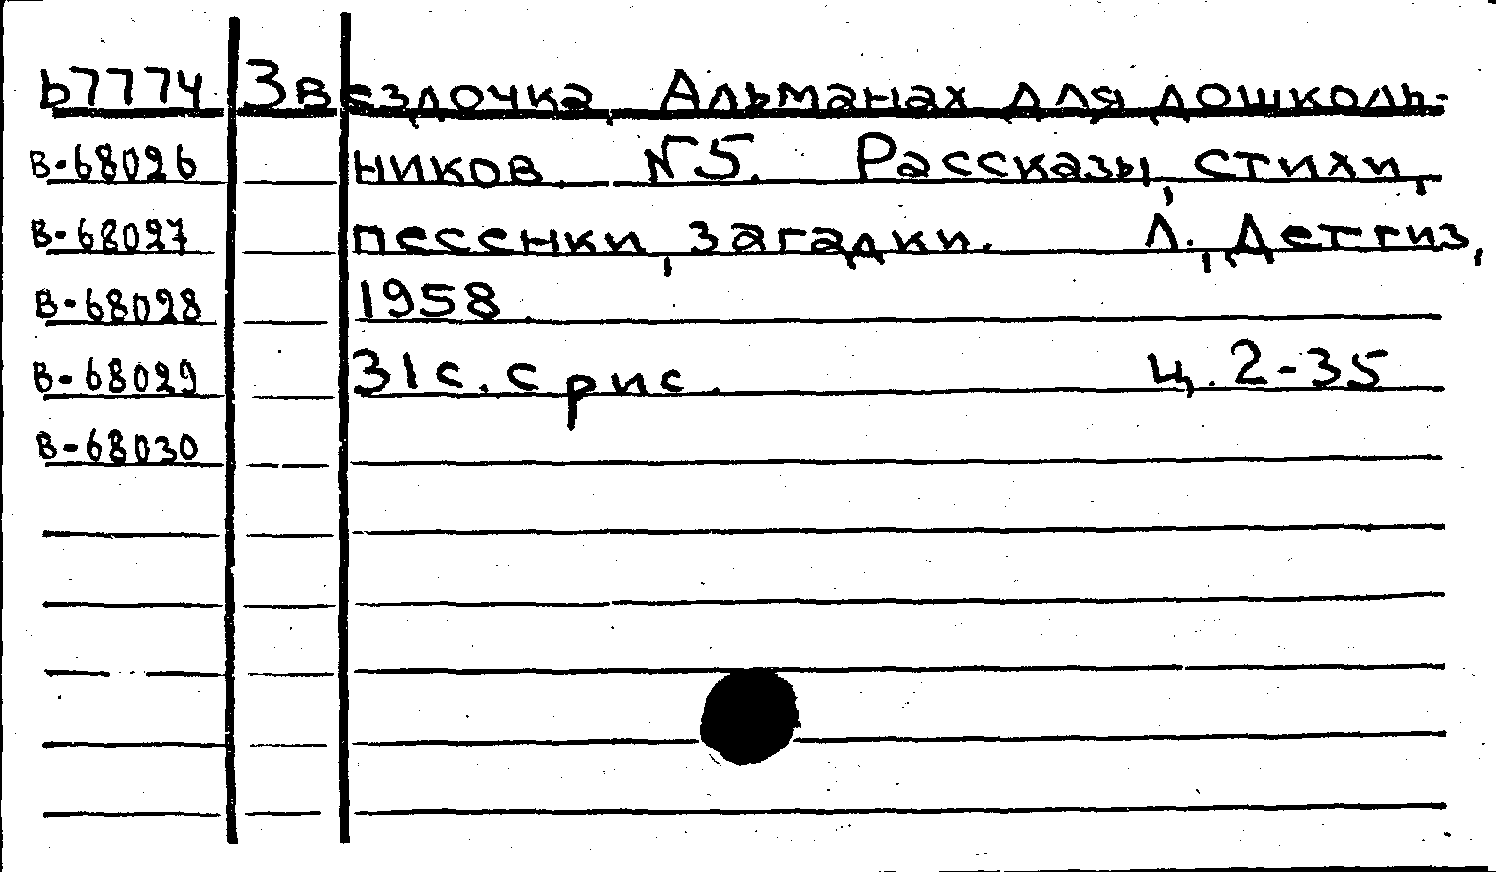 b7774 Звездочка Альманах для дошколь-
В-68026 ников. №5. Рассказы, стихи,
В-68027 песенки, загадки. Л., Детгиз,
В-68028 1958.
В-68029 31с. с рис. Ц. 2-35
В-68030